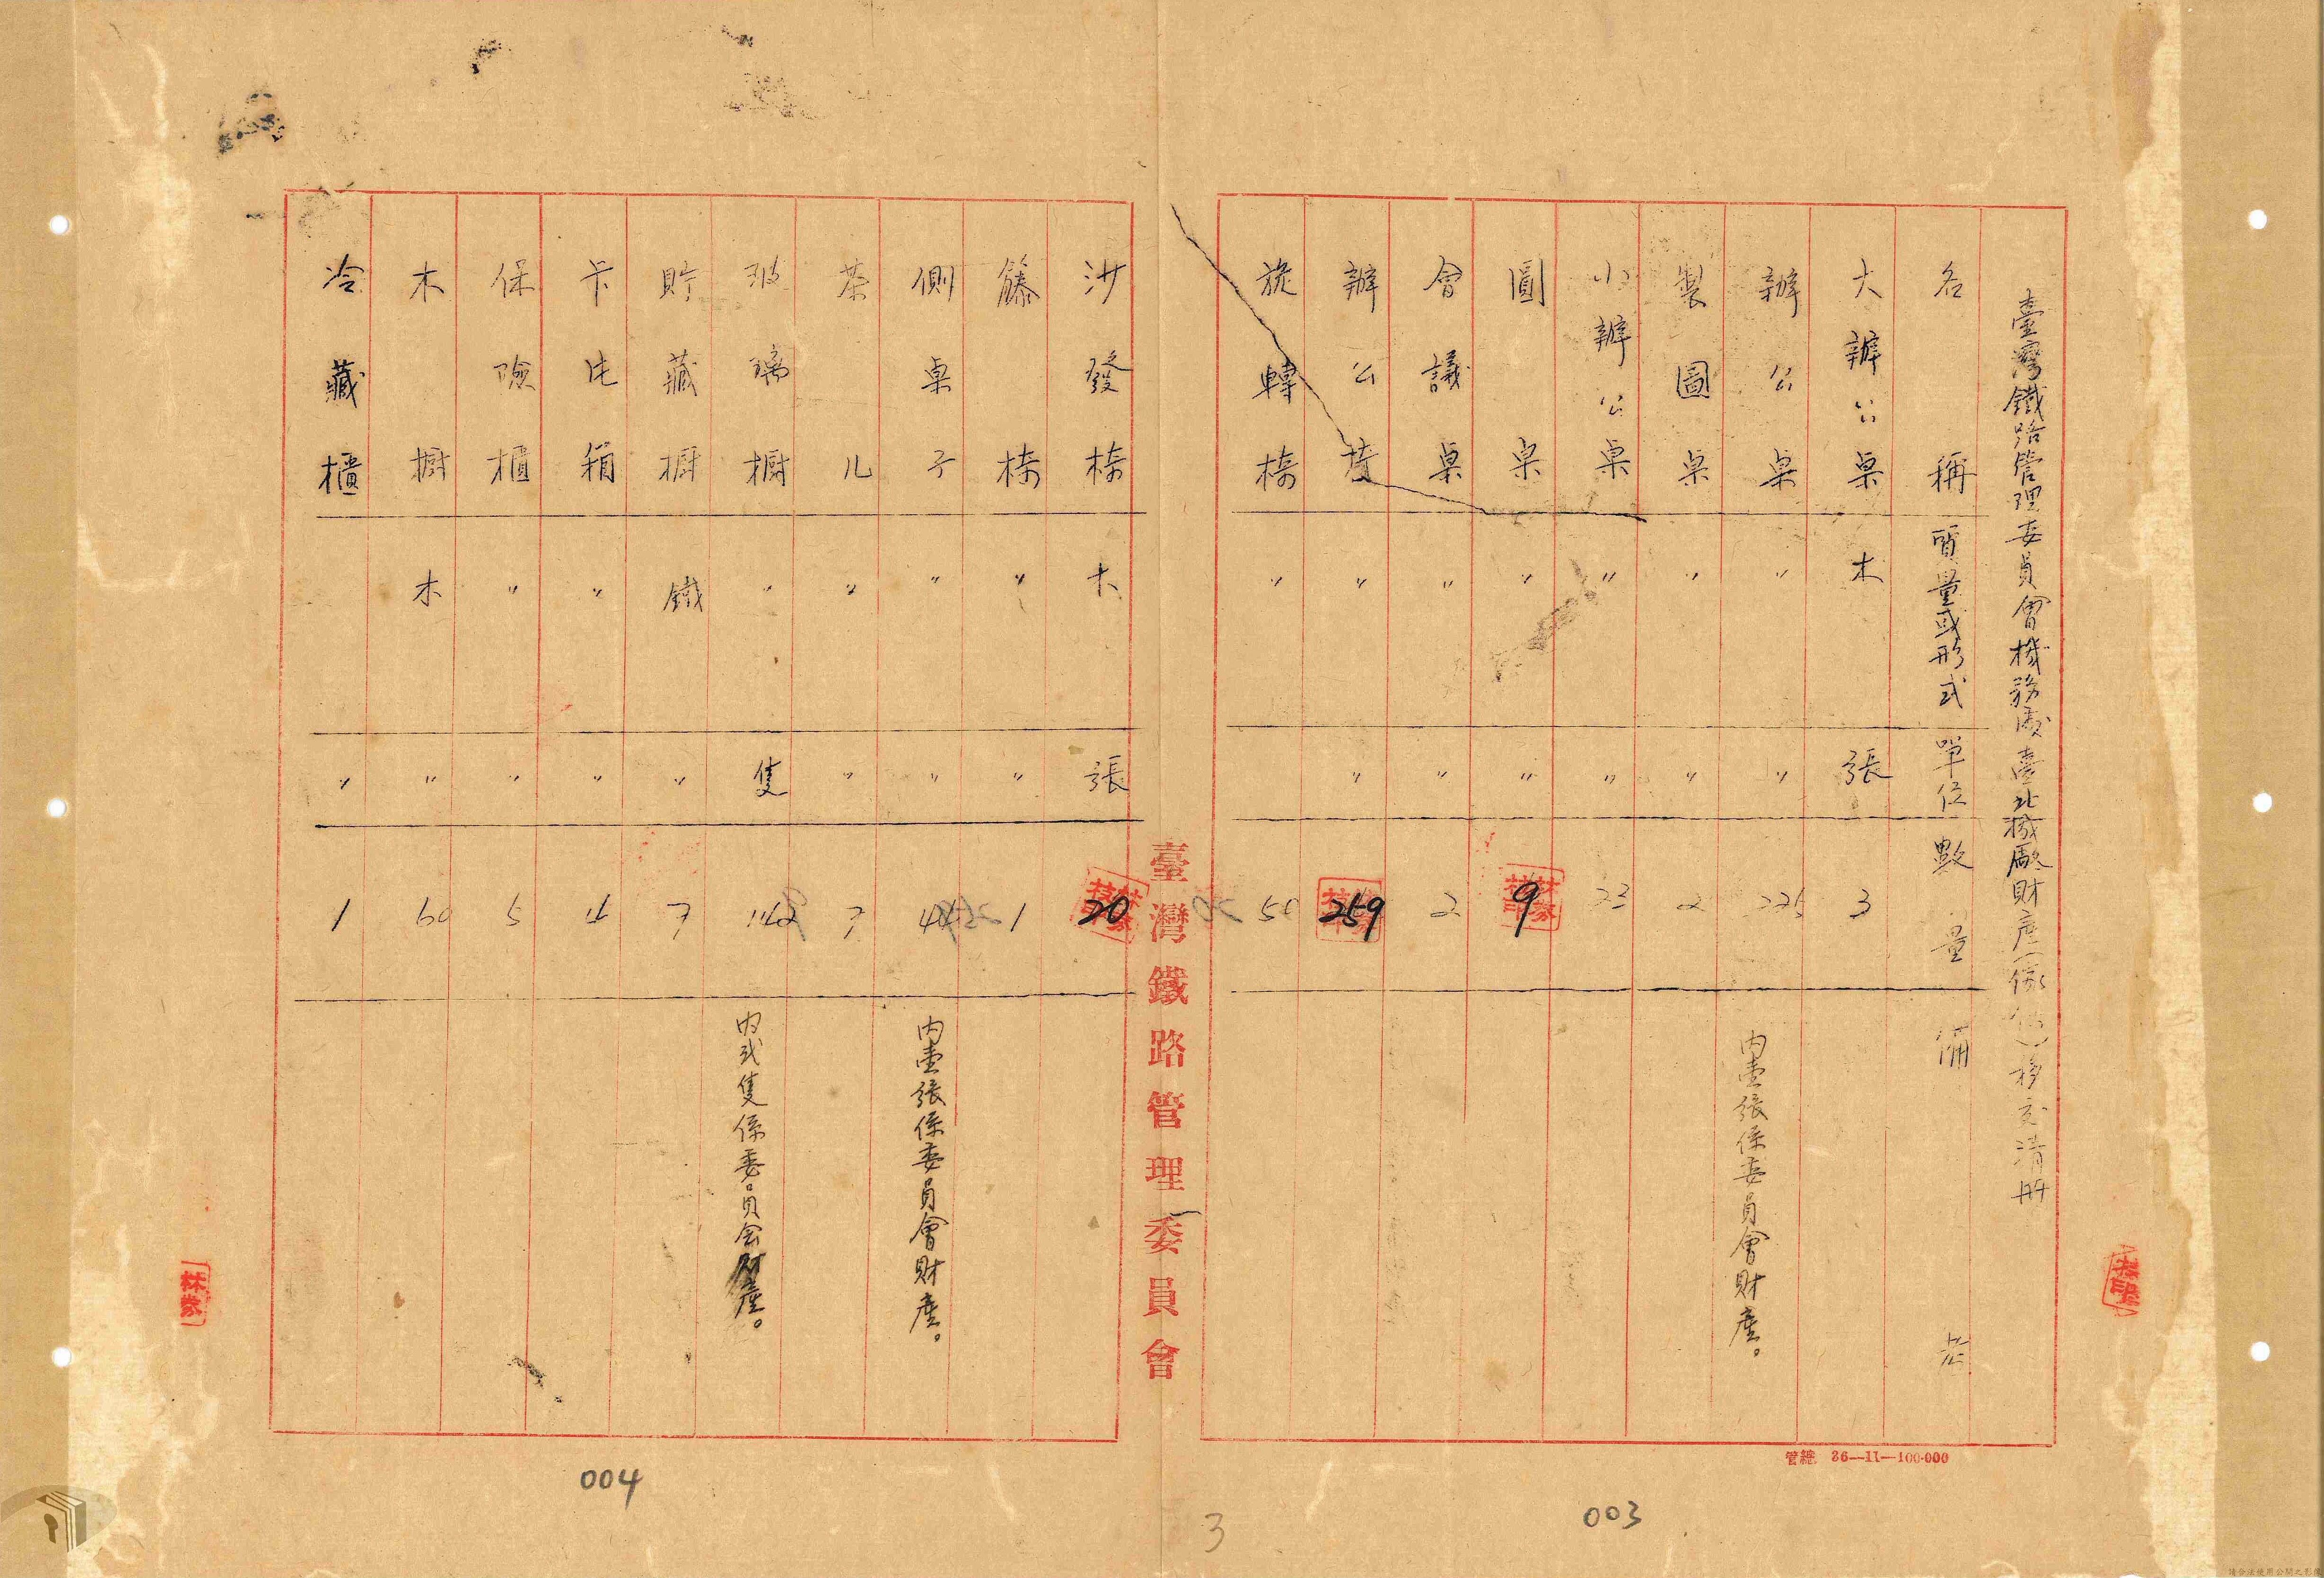 臺灣鐵路管理委員會機務處臺北機廠財產(傢俱)移交清册
名稱 質量或形式 單位 數量 備考
大辦公桌 木 張 3
辦公桌 〃 〃 225 內壹張係委員會財產。
製圖桌 〃 〃 2
小辦公桌 〃 〃 23
圓桌 〃 〃 9
會議桌 〃 〃 2
辦公椅 〃 〃 259
旋轉椅 〃 50
臺灣鐵路管理委員會
沙發椅 木 張 20
籐椅 〃 〃 1
側桌子 〃 〃 44 內壹張係委員會財產。
茶儿 〃 〃 7
玻璃櫥 〃 隻 142 內弍隻係委員会財產。
貯藏櫥 鐵 〃 7
卡片箱 〃 〃 16
保險櫃 〃 〃 5
木櫥 木 〃 60
冷藏櫃 〃 1
管總 36—11—100.000
003
004
3